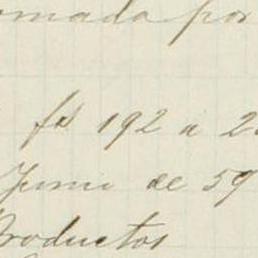 omada por
fs 192 a 2
Junio de 59
Productos